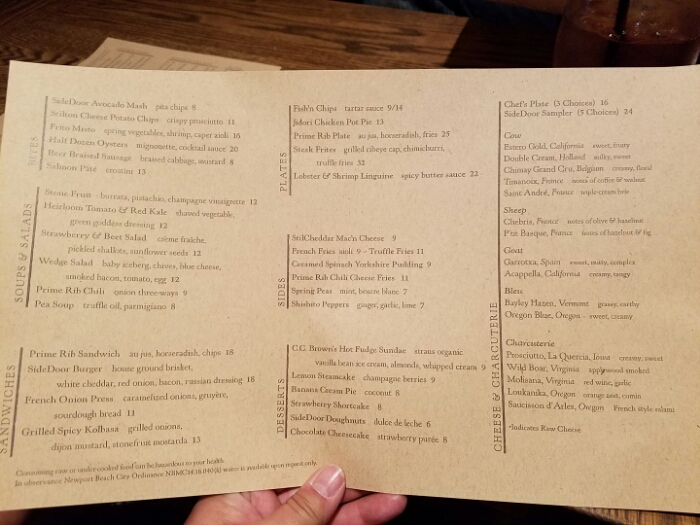 BITES
SideDoor Avocado Mash pita chips 8
Stilton Cheese Potato Chips crispy prosciutto 11
Frito Misto spring vegetables, shrimp, caper aioli 16
Half Dozen Oysters mignonette, cocktail sauce 20
Beer Braised Sausage braised cabbage, mustard 8
Salmon Pâté crostini 13
SOUPS & SALADS
Stone Fruit burrata, pistachio, champagne vinaigrette 12
Heirloom Tomato & Red Kale shaved vegetable,
green goddess dressing 12
Strawberry & Beet Salad crème fraîche,
pickled shallots, sunflower seeds 12
Wedge Salad baby iceberg, chives, blue cheese,
smoked bacon, tomato, egg 12
Prime Rib Chili onion three-ways 9
Pea Soup truffle oil, parmigiano 8
SANDWICHES
Prime Rib Sandwich au jus, horseradish, chips 18
SideDoor Burger house ground brisket,
white cheddar, red onion, bacon, russian dressing 18
French Onion Press caramelized onions, gruyère,
sourdough bread 11
Grilled Spicy Kolbasa grilled onions,
dijon mustard, stonefruit mostarda 13
Consuming raw or undercooked food can be hazardous to your health.
In observance Newport Beach City Ordinance water is available upon request only.
PLATES
Fish'n Chips tartar sauce 9/14
Jidori Chicken Pot Pie 13
Prime Rib Plate au jus, horseradish, fries 25
Steak Frites grilled ribeye cap, chimichurri,
truffle fries 32
Lobster & Shrimp Linguine spicy butter sauce 22
SIDES
StilCheddar Mac'n Cheese 9
French Fries aioli 9 - Truffle Fries 11
Creamed Spinach Yorkshire Pudding 9
Prime Rib Chili Cheese Fries 11
Spring Peas mint, beurre blanc 7
Shishito Peppers ginger, garlic, lime 7
DESSERTS
C.C. Brown's Hot Fudge Sundae straus organic
vanilla bean ice cream, almonds, whipped cream 9
Lemon Steamcake champagne berries 9
Banana Cream Pie coconut 8
Strawberry Shortcake 8
SideDoor Doughnuts dulce de leche 6
Chocolate Cheesecake strawberry purée 8
CHEESE & CHARCUTERIE
Chef's Plate (3 Choices) 16
SideDoor Sampler (5 Choices) 24
Cow
Estero Gold, California sweet, fruity
Double Cream, Holland milky, sweet
Chimay Grand Cru, Belgium creamy, floral
France notes of coffee & walnut
Saint André, France triple-cream brie
Sheep
Chebris, France notes of olive & hazelnut
P'tit Basque, France notes of hazelnut & fig
Goat
Garrotxa, Spain sweet, nutty, complex
Acappella, California creamy, tangy
Bleu
Bayley Hazen, Vermont grassy, earthy
Oregon Blue, Oregon sweet, creamy
Charcuterie
Prosciutto, La Quercia, Iowa creamy, sweet
Wild Boar, Virginia applewood smoked
Molisana, Virginia red wine, garlic
Loukanika, Oregon orange zest, cumin
Saucisson d'Arles, Oregon French style salami
*Indicates Raw Cheese